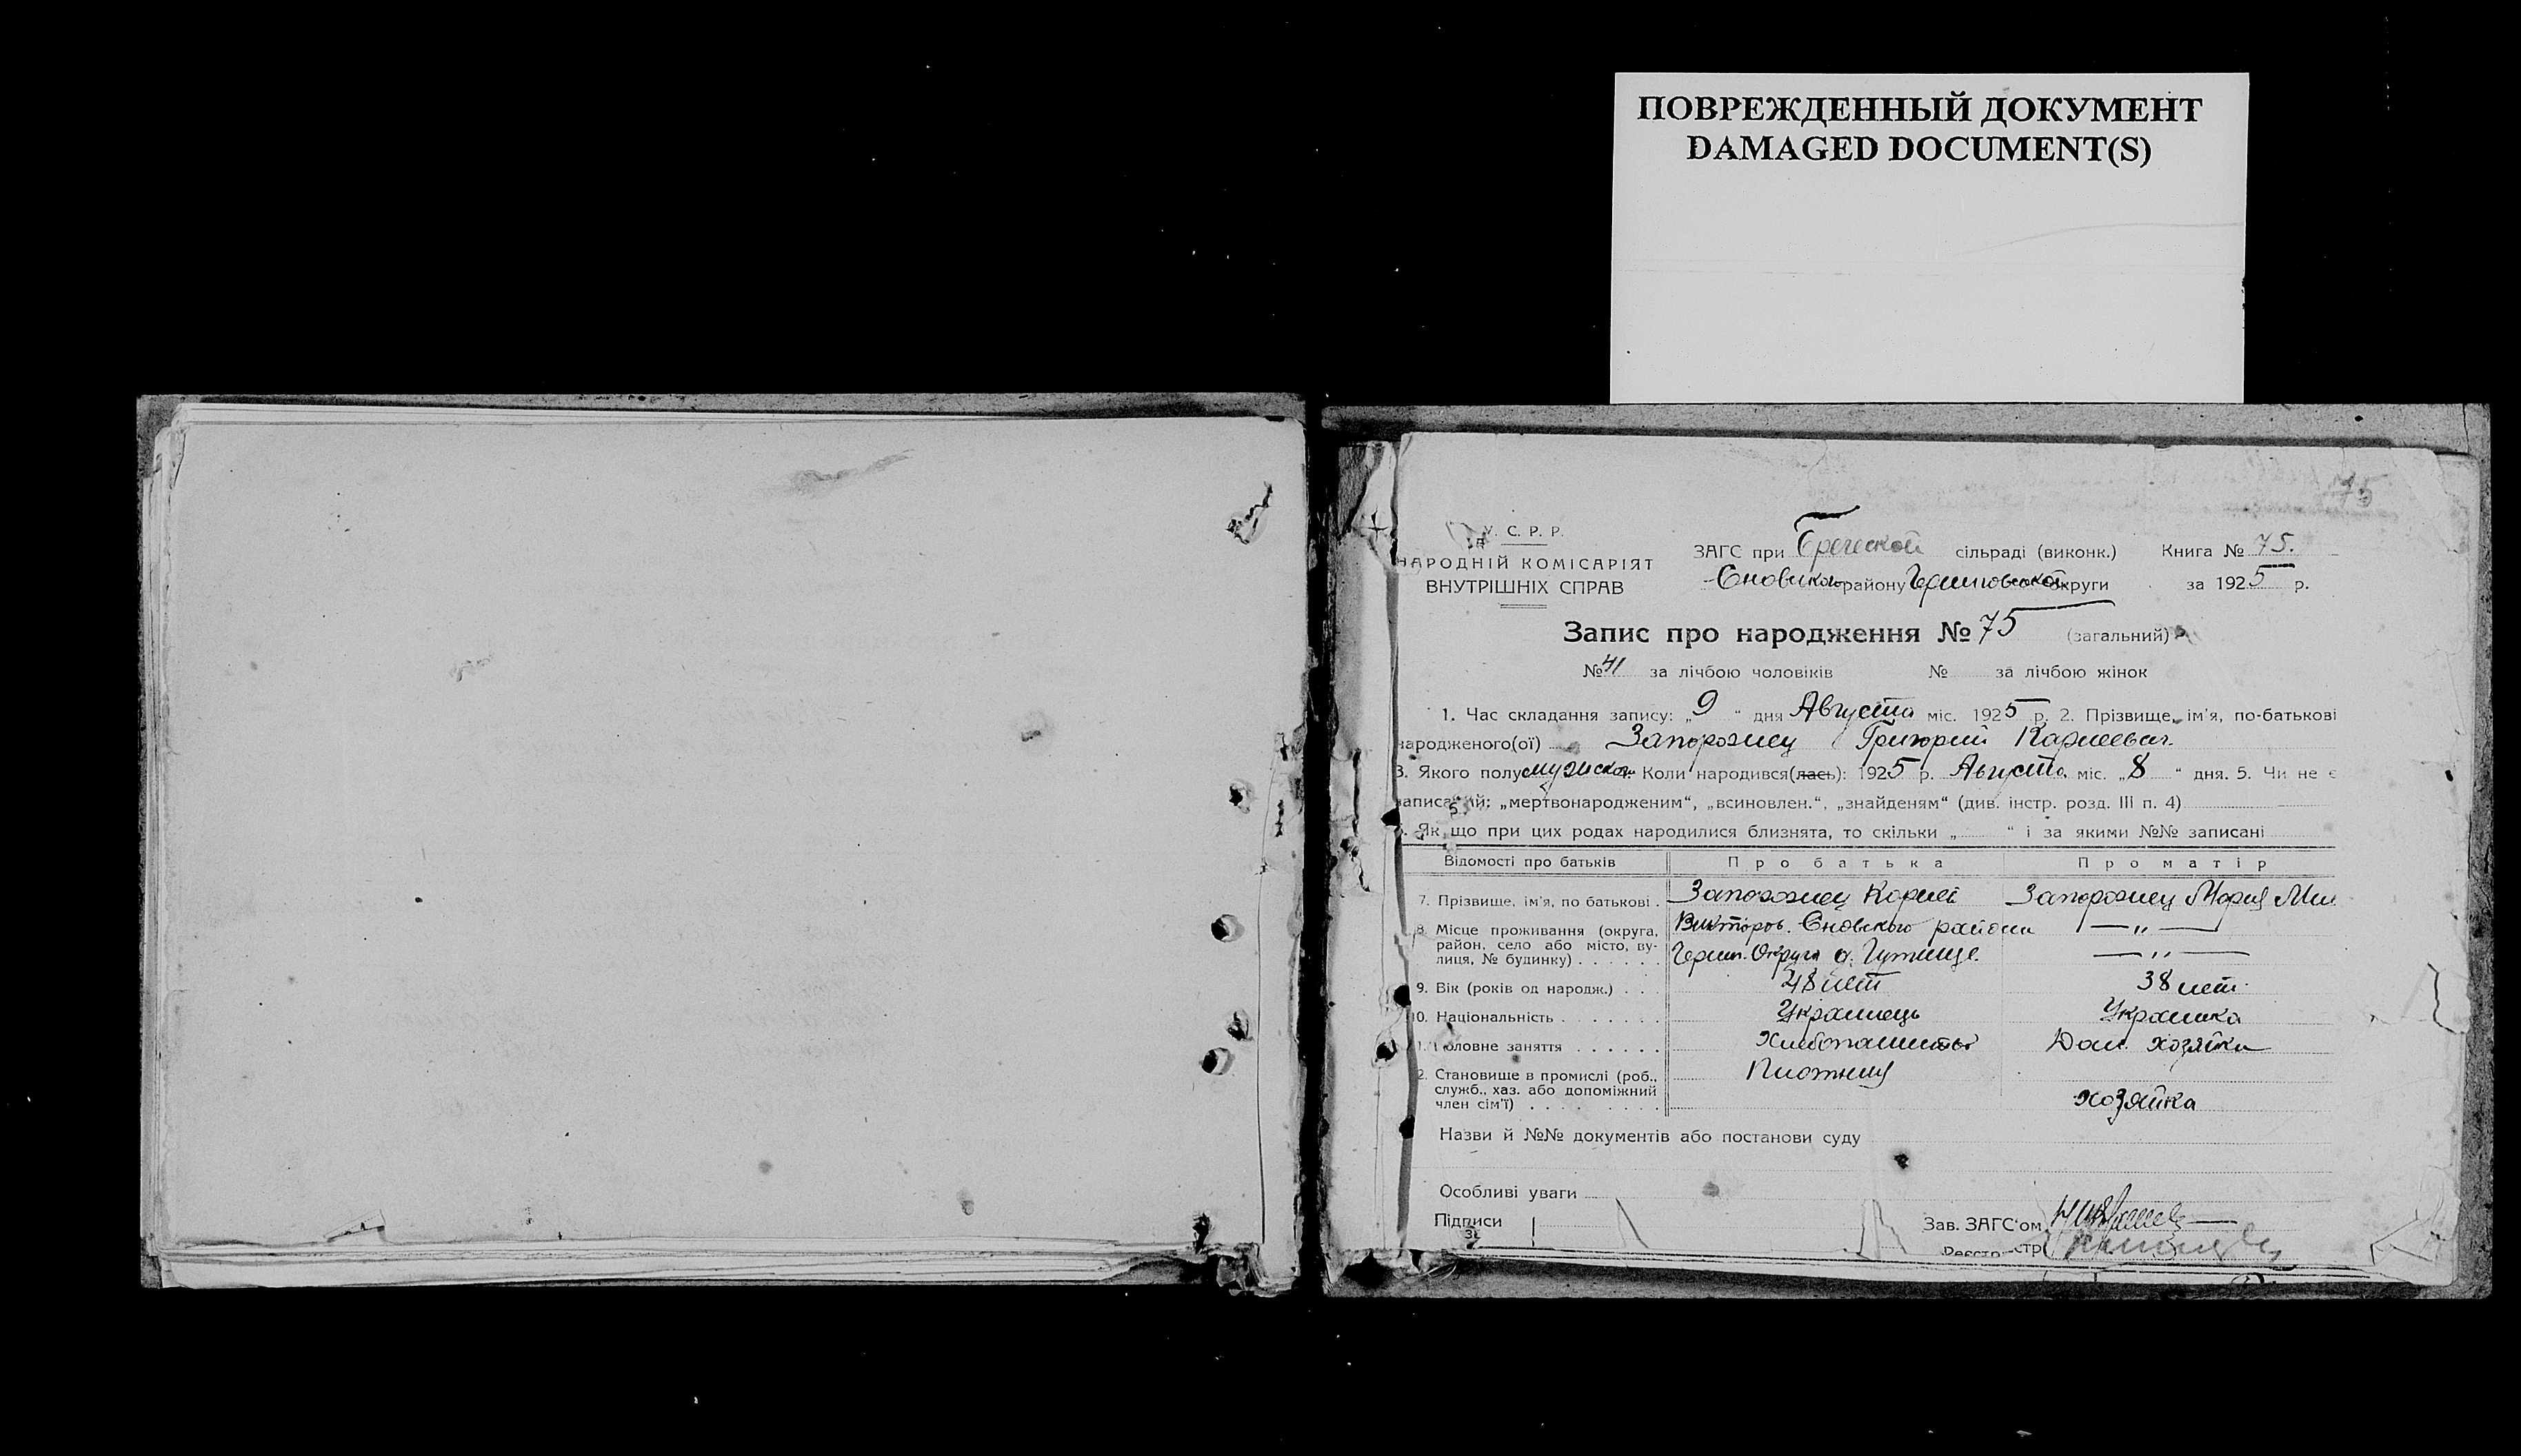 ПОВРЕЖДЕННЫЙ ДОКУМЕНТ
DAMAGED DOCUMENT(S)
75
У. С. Р. Р.
НАРОДНІЙ КОМІСАРІЯТ
ВНУТРІШНІХ СПРАВ
ЗАГС при сільраді (виконк.) Книга № 75.
Сновского району Черниговской округи за 1925 р.
Запис про народження № 75 (загальний)
№ 41 за лічбою чоловіків № за лічбою жінок
1. Час складання запису: „9“ дня Августа міс. 1925 р. 2. Прізвище, ім'я, по-батькові
народженого(ої) Запорожец Григорий Карпеевич
3. Якого полу мужского Коли народився(лась): 1925 р. Августа міс. „8“ дня. 5. Чи не є
записаний: „мертвонародженим“, „всиновлен.“, „знайденям“ (див. інстр. розд. III п. 4)
Як що при цих родах народилися близнята, то скільки „ “ і за якими №№ записані
Відомості про батьків Про батька Про матір
7. Прізвище, ім'я, по батькові . Запорожец Карпей Запорожец Мария
8. Місце проживання (округа, район, село або місто, вулиця, № будинку) . . . . . . Викторов. Сновского района — „ —
Черниг. Округи — „ —
9. Вік (років од народж.) . . . 48 лет 38 лет.
10. Національність . . . . . . . Украинець Украинка
Головне заняття . . . . . . Хлебопашество Дом. хозяйка
2. Становище в промислі (роб., служб., хаз. або допоміжний член сім'ї) . . . . . . . . . Плотниц хозяйка
Назви й №№ документів або постанови суду
Особливі уваги
Підписи Зав. ЗАГС'ом